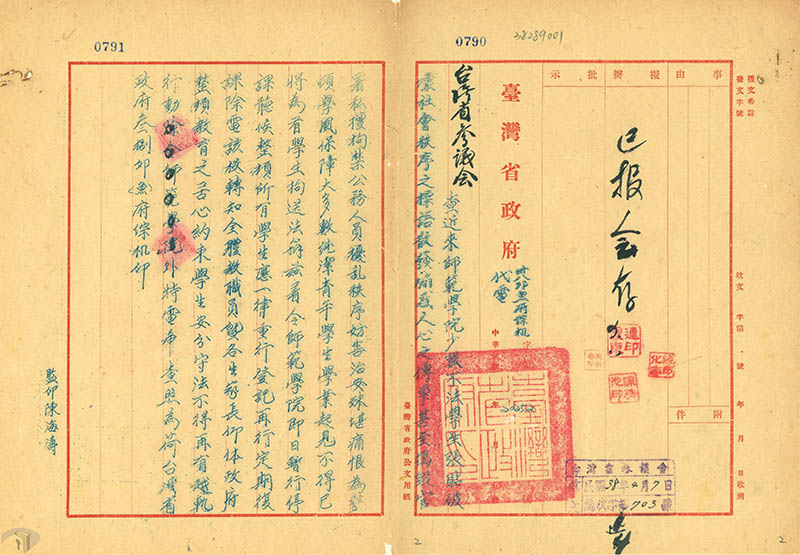 0790
38289001
事由
擬辦
批示
附件
復文希註
發文字號
收文 字第 號 年 月 日收到
已報会存
臺灣省政府
代電
台灣省參議会
查近來師範學院少數不法學生張貼破
壞社會秩序之標語散發煽惑人心之傳單甚至搗毀官
臺灣省參議會
民國38年4月7日
703
臺灣省政府公文用紙
2
0791
署私擅拘禁公務人員擾乱秩序妨害治安殊堪痛恨為整
頓學風保障大多數純潔青年學生學業起見不得已
將為首學生拘送法辦茲着令師範學院即日暫行停
課聽候整頓所有學生應一律重行登記再行定期復
課除電該校轉知全體教職員暨各生家長仰体政府
整頓教育之苦心約束學生安分守法不得再有越軌
行動 師範學院外特電布查照為荷台灣省
政府叁捌卯魚府綜机印
監印陳海濤
2